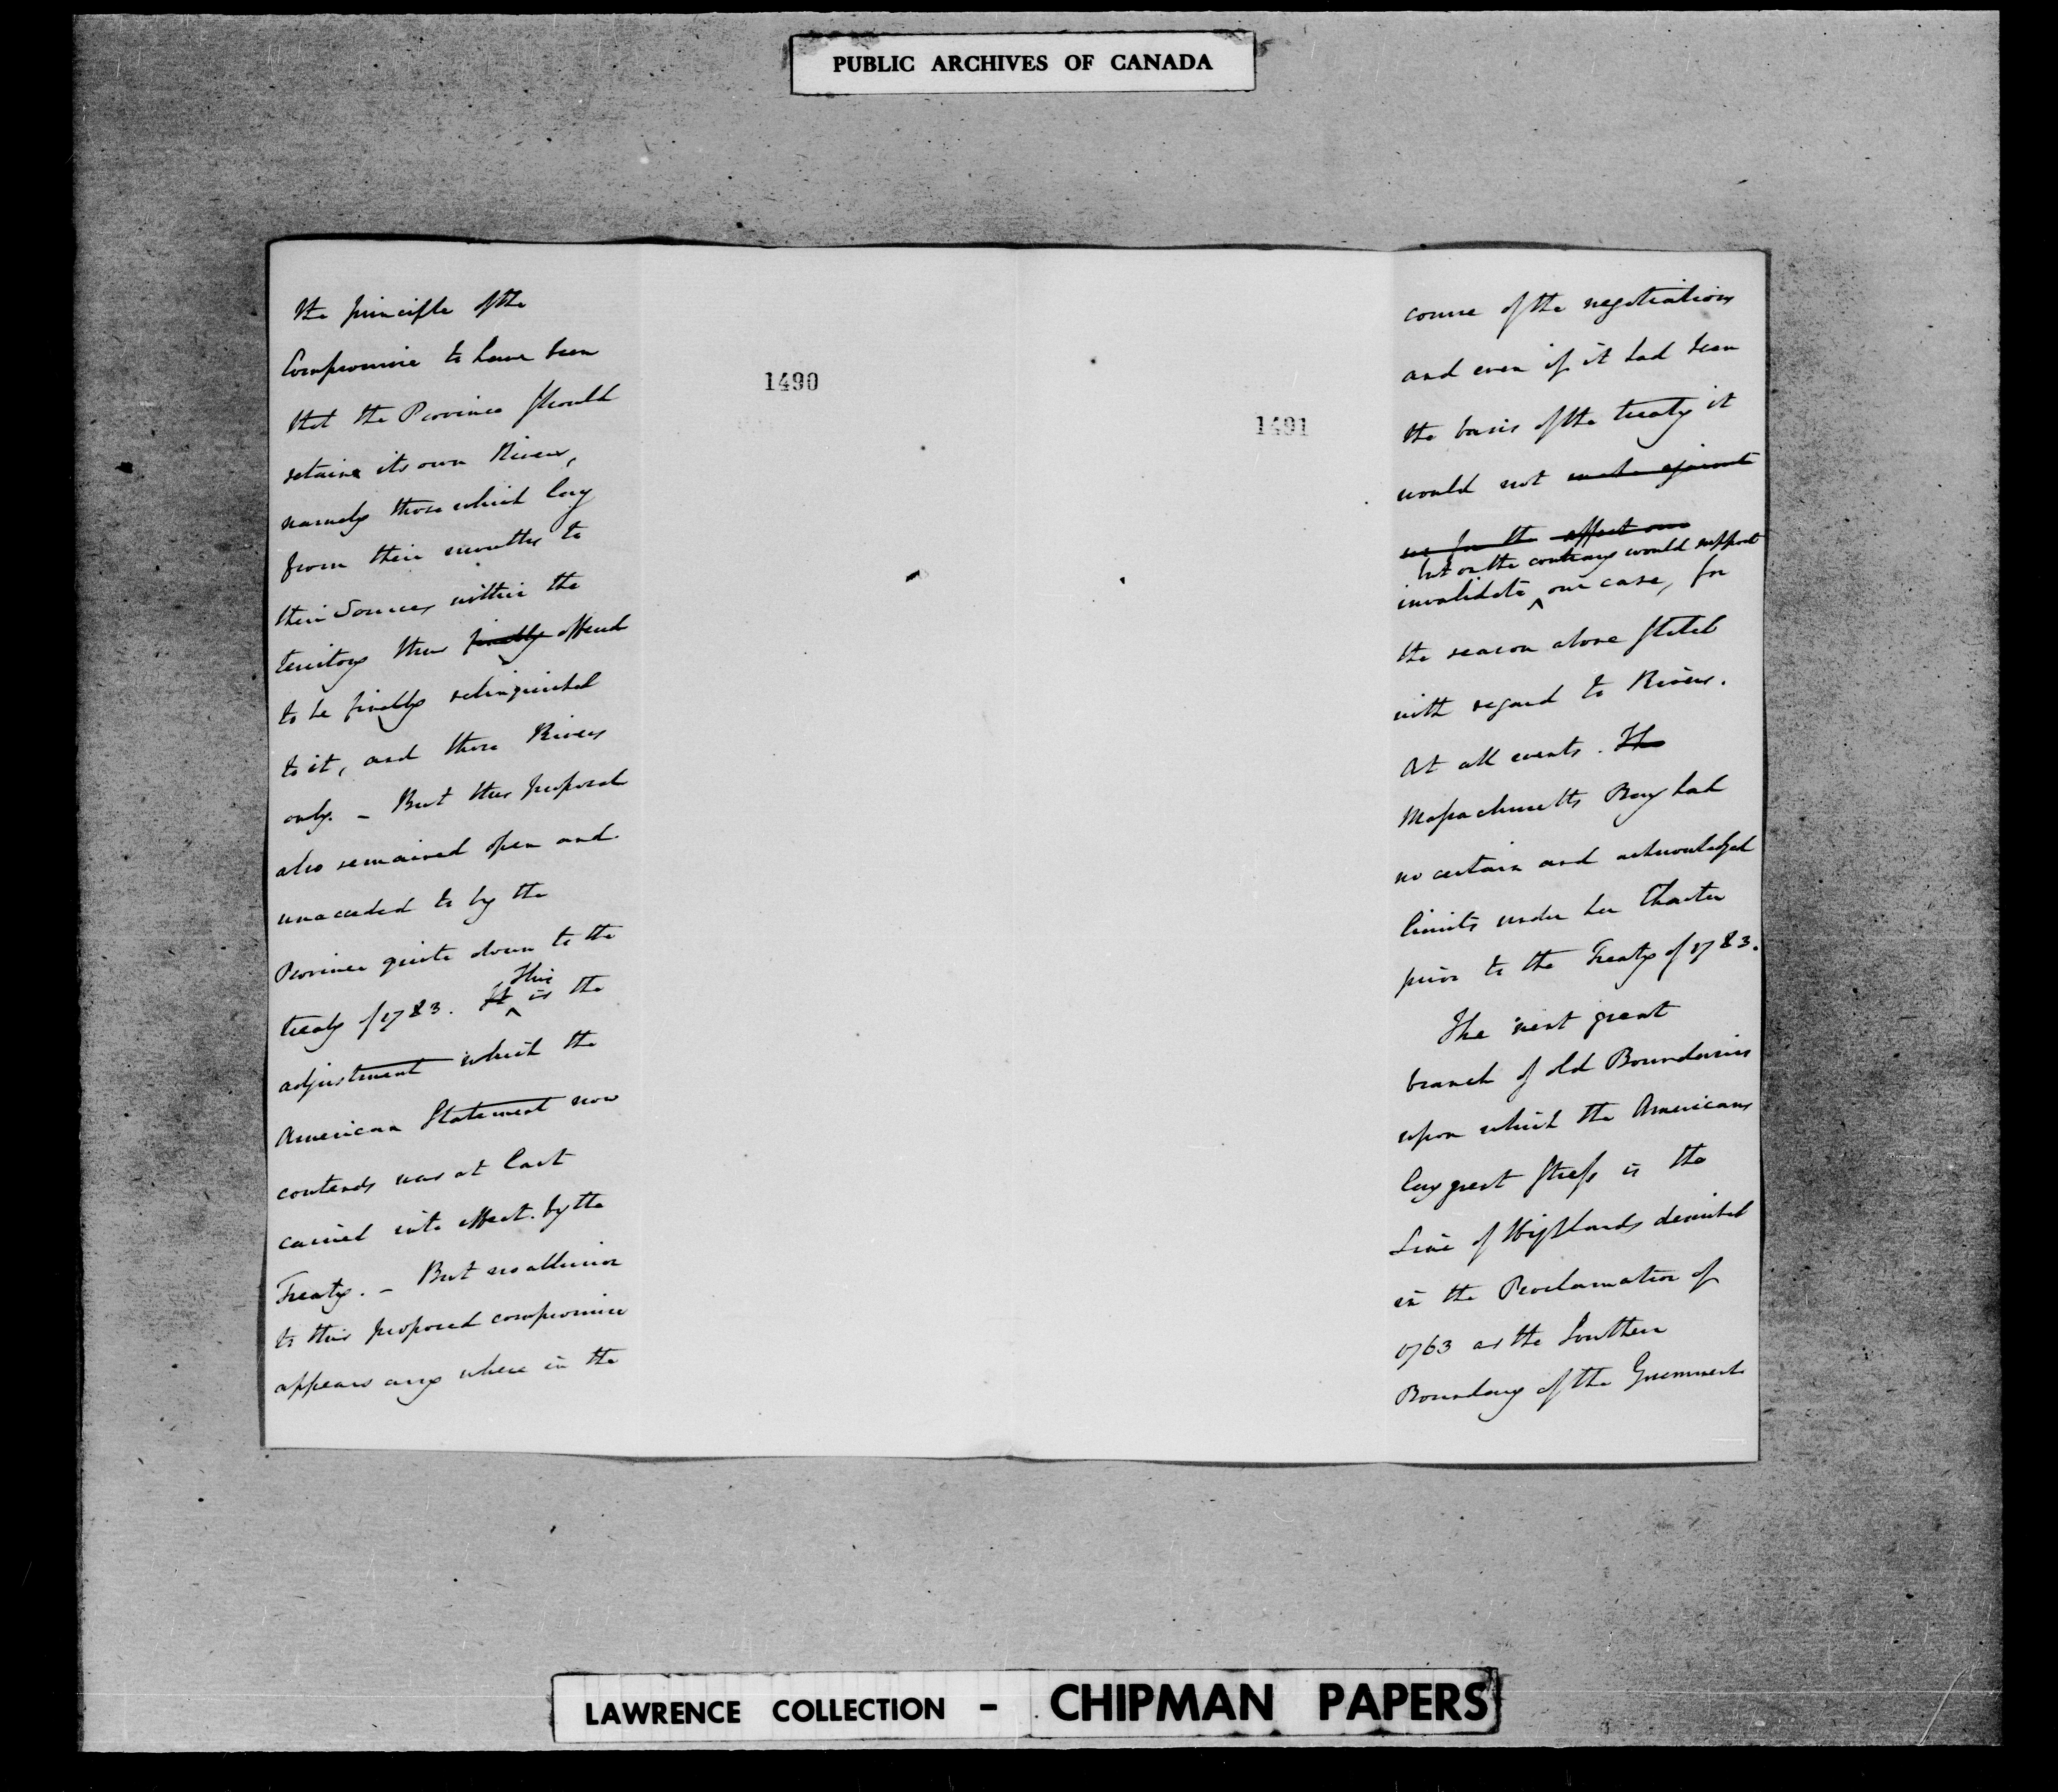 PUBLIC ARCHIVES OF CANADA
1490
the principle of the
Compromise to have been
that the Province should
retain its own Rivers,
namely those which lay
from their mouths to
their Sources within the
territory then finally offered
to be finally relinquished
to it, and those Rivers
only. – But this proposal
also remained open and
unacceded to by the
Province quite down to the
This
treaty of 1783. It ^ is the
adjustment which the
American Statement now
contends was at last
carried into effect by the
Treaty. – But no allusion
to this proposed compromise
appears any where in the
1491
course of the negotiations
and even if it had been
the basis of the treaty it
would not make against
us for the effect our
but on the contrary would support
invalidate ^ our case, for
the reason above stated
with regard to Rivers.
At all events. The
Massachusetts Bay had
no certain and acknowledged
limits under her Charter
prior to the Treaty of 1783.
The next great
branch of old Boundaries
upon which the Americans
lay great stress is the
Line of Highlands described
in the Proclamation of
1763 as the Southern
Boundary of the Government
LAWRENCE COLLECTION - CHIPMAN PAPERS